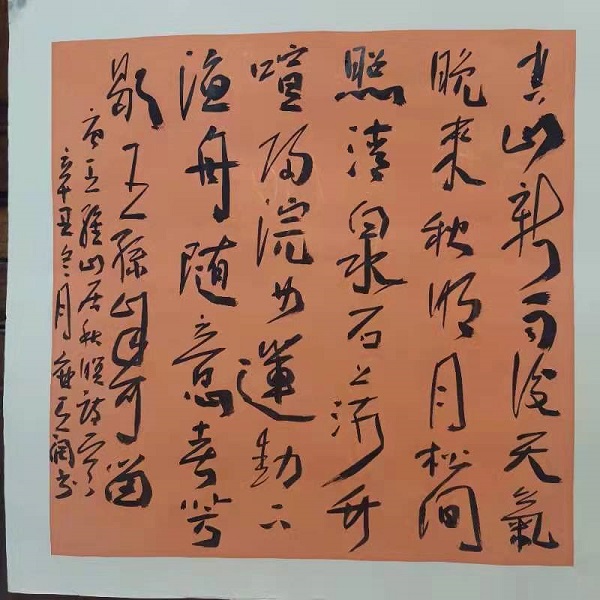 空山新雨後天氣
晚來秋明月松间
照清泉石上流竹
喧歸浣女蓮動下
渔舟随意春芳
歇王孫自可留
唐王維山居秋暝詩一首
辛丑冬月書